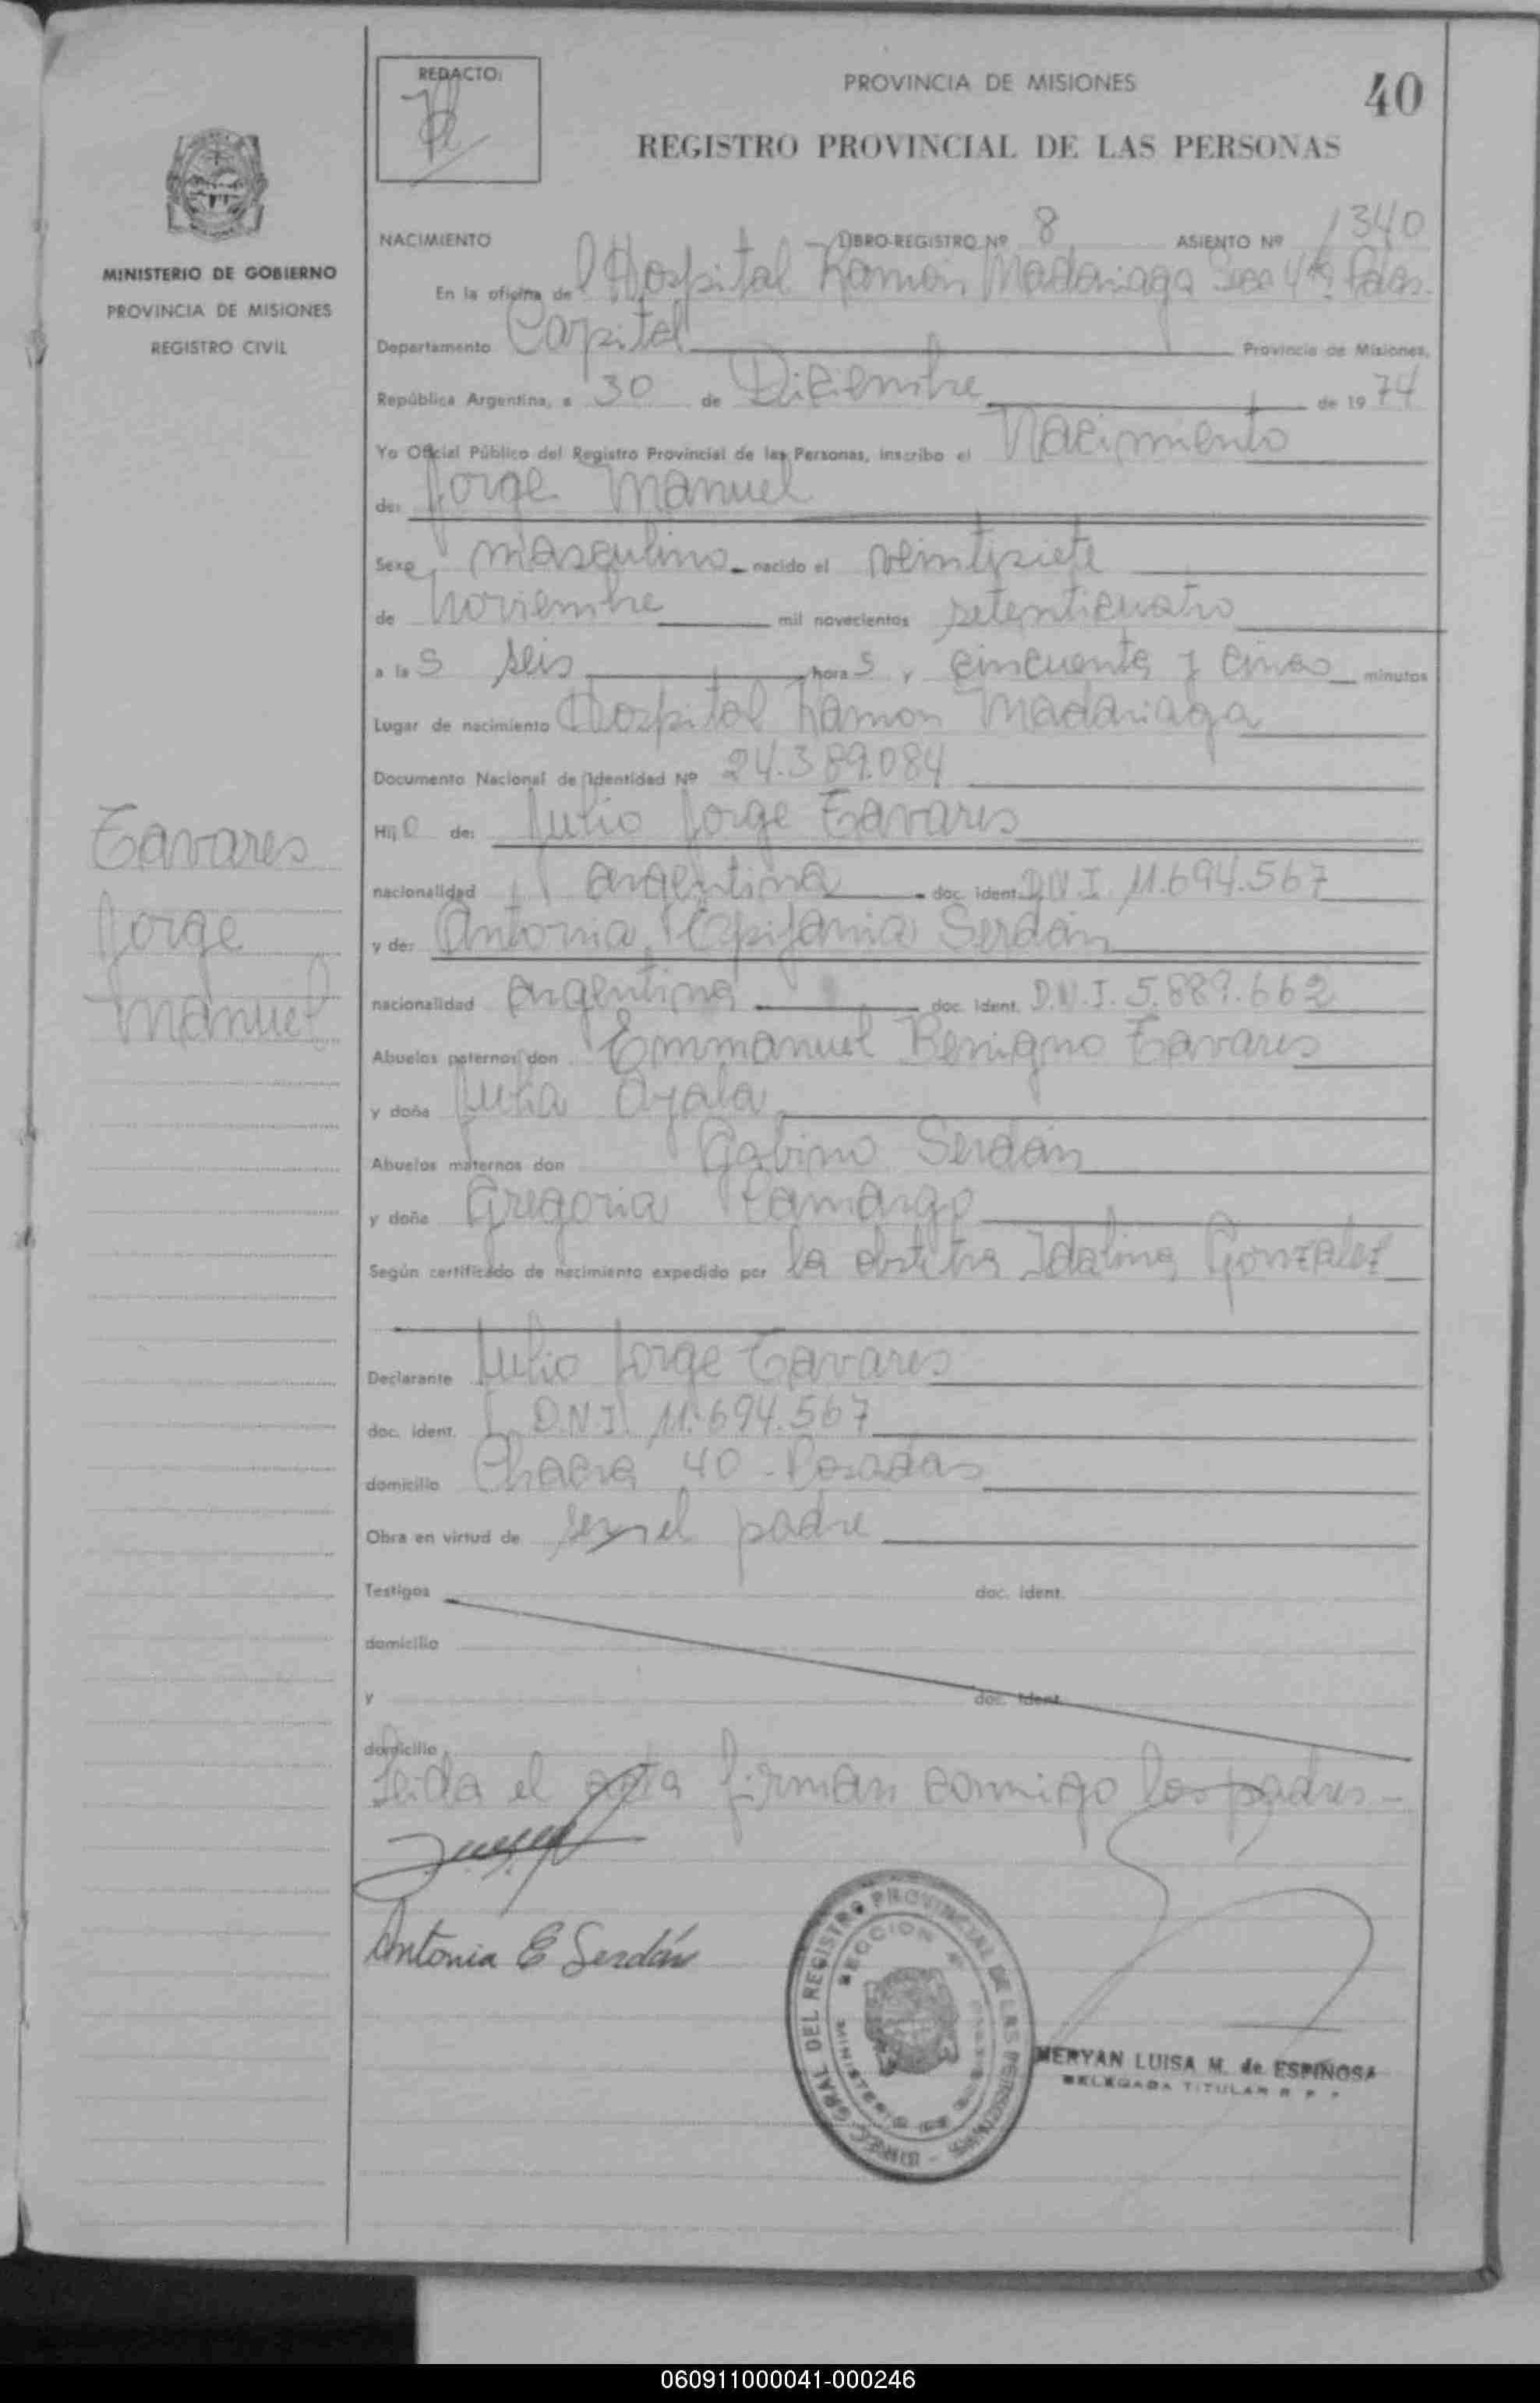 REDACTO:
PROVINCIA DE MISIONES
40
REGISTRO PROVINCIAL DE LAS PERSONAS
MINISTERIO DE GOBIERNO
PROVINCIA DE MISIONES
REGISTRO CIVIL
NACIMIENTO LIBRO-REGISTRO Nº 8 ASIENTO Nº 1340
En la oficina de l Hospital Ramón Madariaga Secc 4ta Pdas.
Departamento Capital Provincia de Misiones,
República Argentina, a 30 de Diciembre de 1974
Yo Oficial Público del Registro Provincial de las Personas, inscribo el Nacimiento
de: Jorge Manuel
Sexo masculino nacido el veintisiete
de Noviembre mil novecientos setenticuatro
a las seis horas y cincuenta y cinco minutos
Lugar de nacimiento Hospital Ramon Madariaga
Documento Nacional de Identidad Nº 24.389.084
Hijo de: Julio Jorge Tavares
nacionalidad argentina doc. ident. D.N.I. 11.694.567
y de: Antonia Epifania Serdán
nacionalidad argentina doc. ident. D.N.I. 5.889.662
Abuelos paternos don Emmanuel Benigno Tavares
y doña Julia Ayala
Abuelos maternos don Gabino Serdán
y doña Gregoria Camargo
Según certificado de nacimiento expedido por la obstetra Idalina Gonzalez
Declarante Julio Jorge Tavares
doc. ident. D.N.I. 11.694.567
domicilio Chacra 40 - Posadas
Obra en virtud de ser el padre
Testigos doc. ident.
domicilio
y doc. ident.
domicilio
Leida el acta firman conmigo los padres -
Antonia E Serdán
Tavares
Jorge
Manuel
DIREC. GRAL DEL REGISTRO PROVINCIAL DE LAS PERSONAS
SECCION 4ª
MINISTERIO DE GOBIERNO
MERYAN LUISA M. de ESPINOSA
DELEGADA TITULAR R P P
060911000041-000246